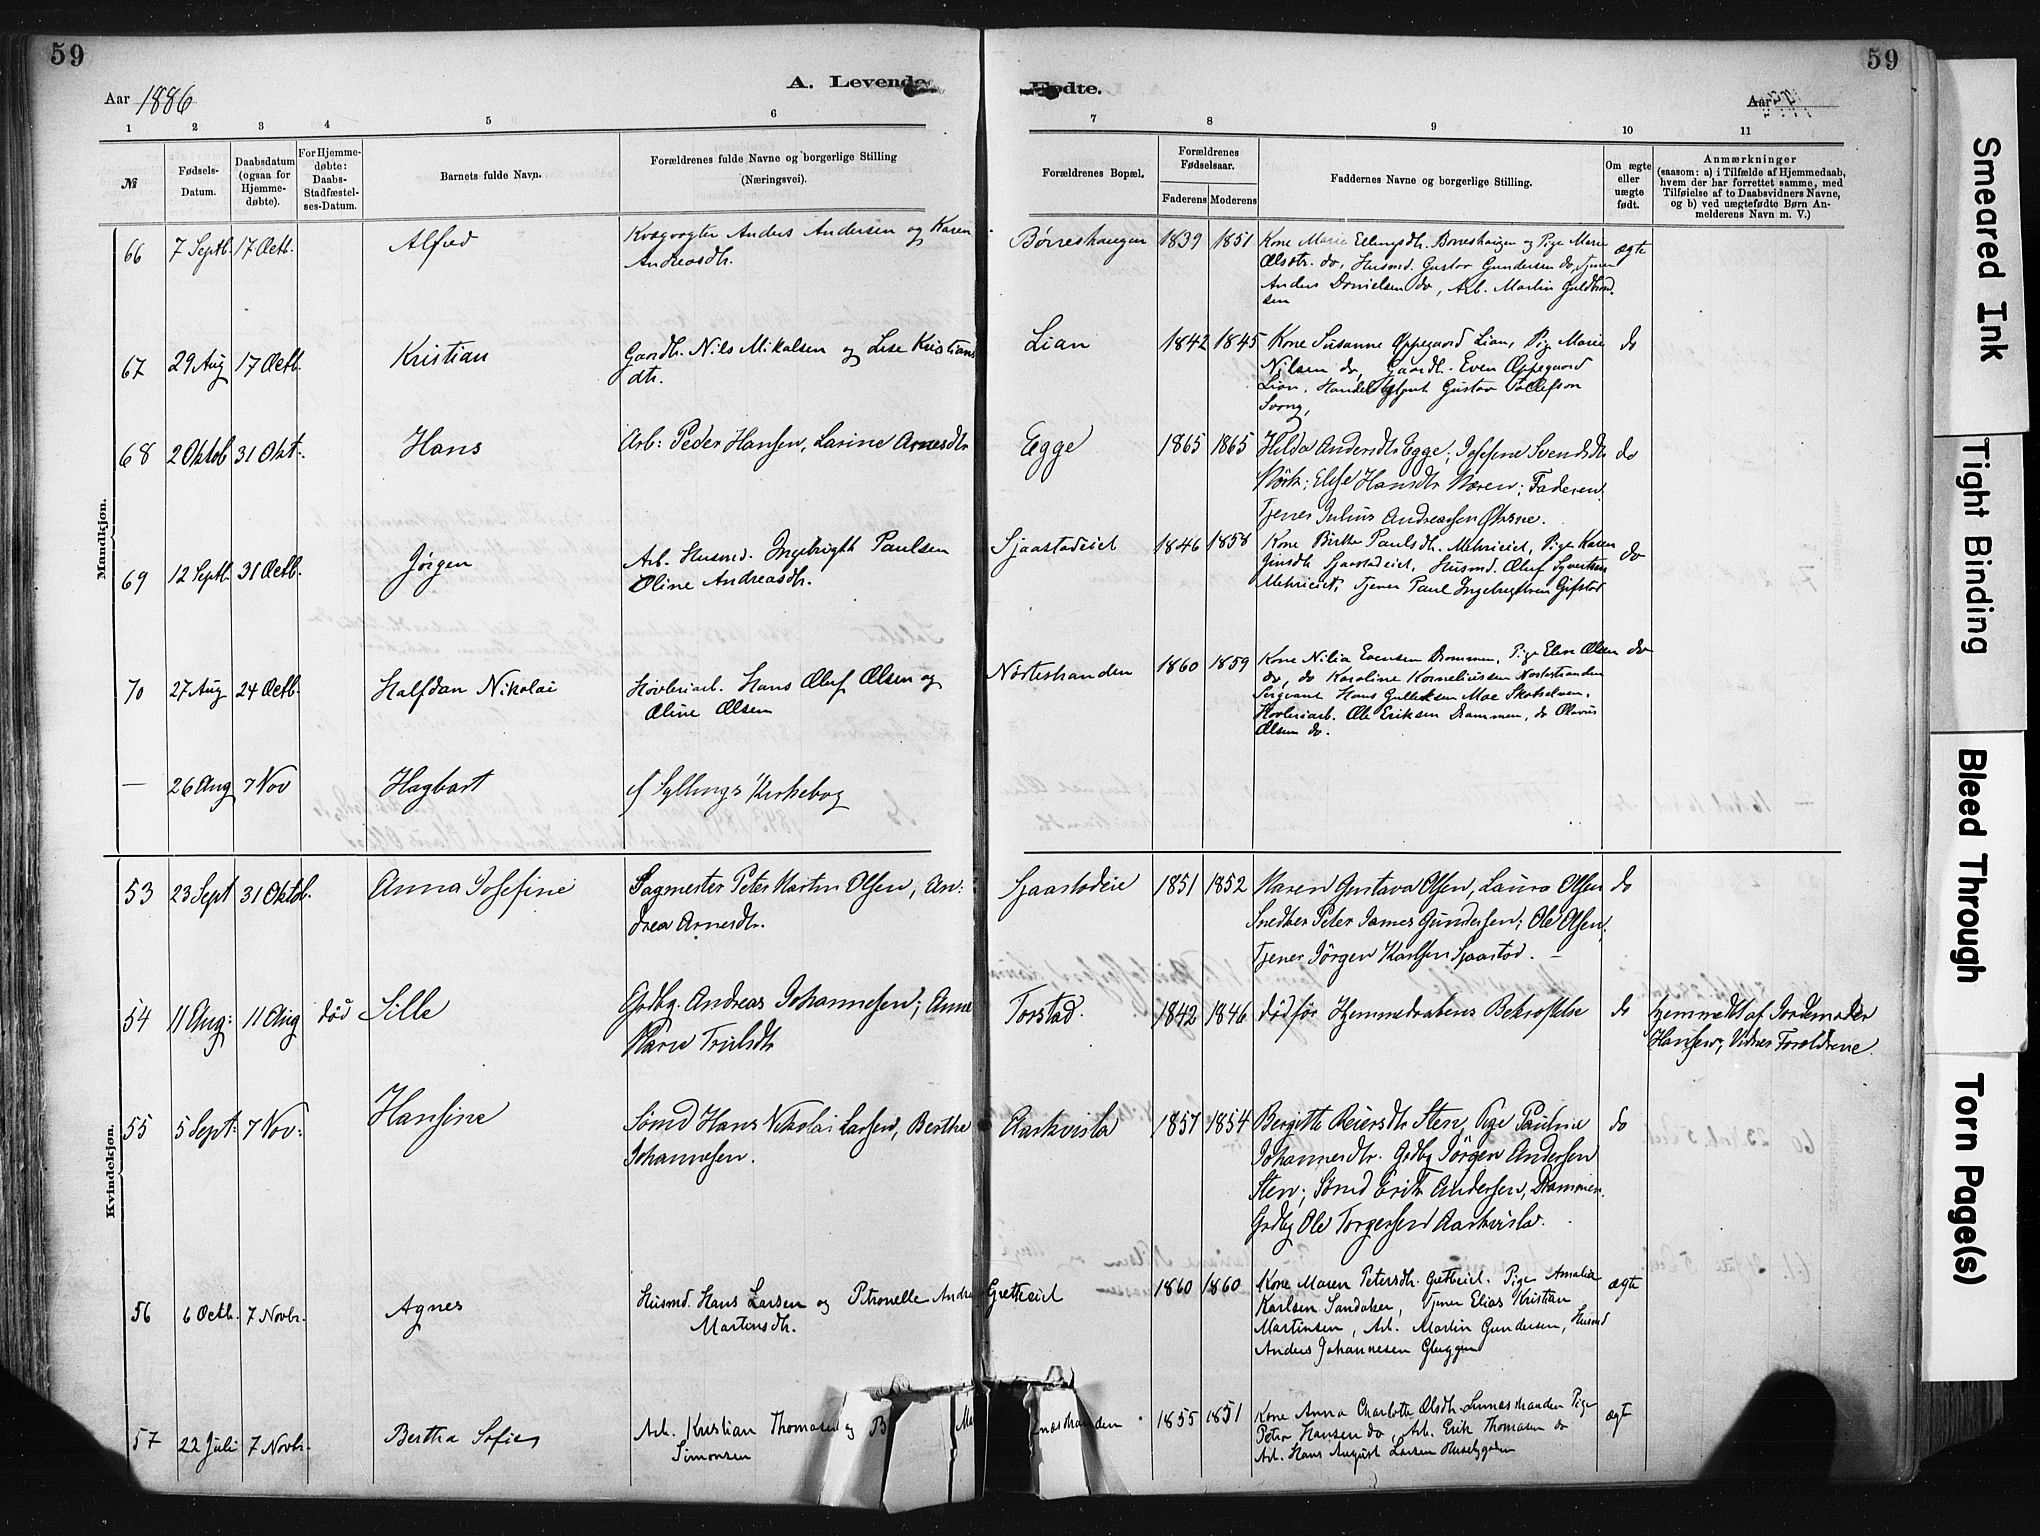 59
59
Aar 1886
A. Levende
Fødte.
Aar
1
2
3
4
5
6
7
8
9
10
11
№
Fødsels-
Datum.
Daabsdatum
(ogsaa for
Hjemme-
døbte).
For Hjemme-
døbte:
Daabs-
Stadfæstel-
ses-Datum.
Barnets fulde Navn.
Forældrenes fulde Navne og borgerlige Stilling
(Næringsvei).
Forældrenes Bopæl.
Forældrenes
Fødselsaar.
Faderens
Moderens
Faddernes Navne og borgerlige Stilling.
Om ægte
eller
uægte
født.
Anmærkninger
(saasom: a) i Tilfælde af Hjemmedaab,
hvem der har forrettet samme, med
Tilføielse af to Daabsvidners Navne,
og b) ved uægtefødte Børn An-
melderens Navn m. V.)
Mandkjøn.
66 7 Septb. 17 Octb. Alfred Kvægvogter Anders Andersen og Karen Børreshaugen 1839 1851 Kone Marie Ellingsdtr. Børreshaugen og Pige Marie ægte
Andreasdtr. Olsdtr. do, Husmd. Gustav Gundersen do, Tjener
Anders Danielsen do, Arb. Martin Guldbrand-
sen
67 29 Aug 17 Octb. Kristian Gaardbr. Nils Mikalsen og Lise Kristians Lian 1842 1845 Kone Susanne Oppegaard Lian, Pige Marie do
dtr. Nilsen do, Gaardbr. Even Oppegaard
Lian, Gustav Tollefsen
68 2 Oktob 31 Okt. Hans Arb: Peder Hansen, Larine Arnesdtr Egge 1865 1865 Hilda Andersdtr Egge; Josefine Svendsdtr do
Elise Hansdtr Næren; Faderen.
Tjener Julius Andreassen
69 12 Septb. 31 Octb. Jørgen Arb. Husmd. Ingebrigth Paulsen Sjaastadeiet 1846 1858 Kone Birthe Paulsdtr. Pige Karen do
Oline Andreasdtr. Sjaastadeiet, Husmd. Oluf Syvertsen
Tjener Paul Ingebrigtsen Gifstad
70 27 Aug 24 Octb. Halfdan Nikolai Høvleriarb. Hans Oluf Olsen og Nøstestranden 1860 1859 Kone Nilia Evensen Drammen, Pige Elen Olsen do
Oline Olsen do, do Karoline Korneliussen Nøstestranden
Sergeant Hans Gulliksen Moe Skotselven,
Høvleriarb. Ole Eriksen Drammen, do Olavus
Olsen do.
— 26 Aug 7 Nov Hagbart cf Syllings Kirkebog
Kvindekjøn.
53 23 Sept 31 Oktob. Anna Josefine Sagmester Peter Martin Olsen, An- Sjaastadeie 1851 1852 Maren Gustava Olsen, Laura Olsen do
drea Arnesdtr. Snedker Peter James Gundersen; Ole Olsen;
Tjener Jørgen Karlsen Sjaastad. —
54 11 Aug: 11 Aug død Sille Grdbg. Andreas Johannesen; Anne Torstad. 1842 1846 død før Hjemmedaabens Bekræftelse do hjemmedbt af Jordemoder
Marie Trulsdtr Hansen; Vidner Forældrene.
55 5 Sept: 7 Nov: Hansine Hans Nikolai Larsen, Berthe Aarkvisla 1857 1854 Bergitte Reiersdtr Sten, Pige Pauline do
Johannesen. Johannesdtr. Grdbg Jørgen Andersen
Sten; Erik Andersen, Drammen.
Grdbg Ole Torgersen Aarkvisla.
56 6 Octb. 7 Novbr. Agnes Husmd. Hans Larsen og Petronelle Andrea Gretheeiet 1860 1860 Kone Maren Petersdtr. Pige Amalia ægte
Martinsdtr. Karlsen Sandaker, Tjener Elias Kristian
Martinsen, Arb. Martin Gundersen, Husmd
Anders Johannesen Gluggen
57 22 Juli 7 Novbr. Bertha Sofie Arb. Kristian Thomasen og B Ma næsstranden 1855 1851 Kone Anna Charlotte Olsdtr. Linnæsstranden Pige ægt
Simonsen Peter Hansen do, Arb. Erik Thomasen do
Arb. Hans August Larsen
Smeared Ink
Tight Binding
Bleed Through
Torn Page(s)